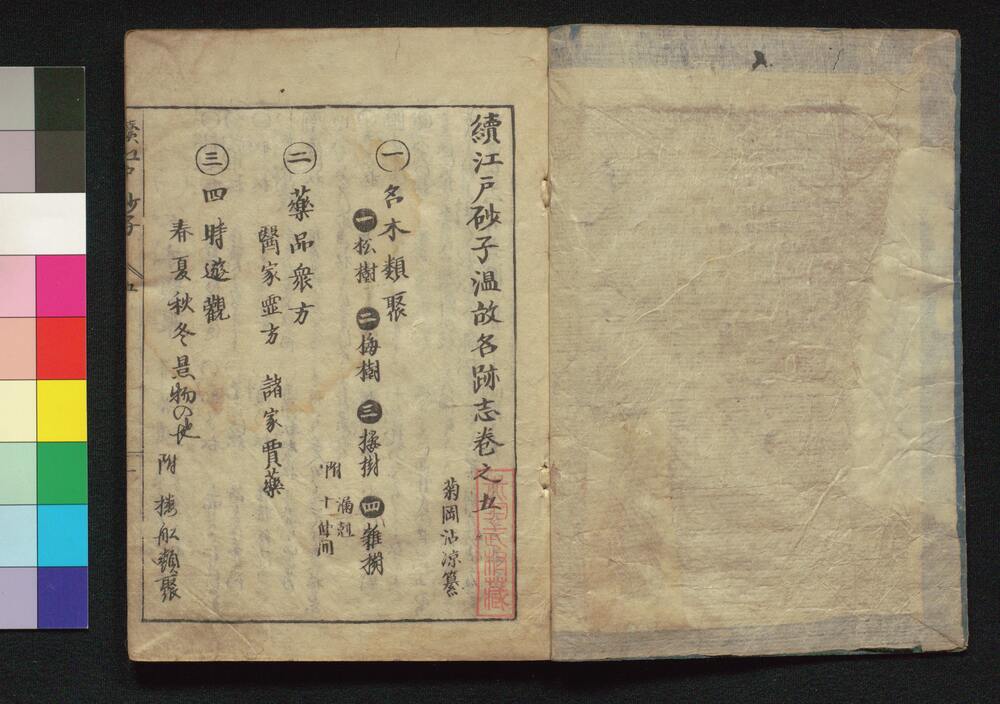 續江戸砂子温故名跡志巻之五
菊岡沾凉纂
㊀名木類聚
一松樹 二梅樹 三桜樹 四雜樹
附
㊁藥品衆方
醫家霊方 諸家賣藥
㊂四時遊觀
春夏秋冬景物の地 附 類聚
續江戸砂子 五